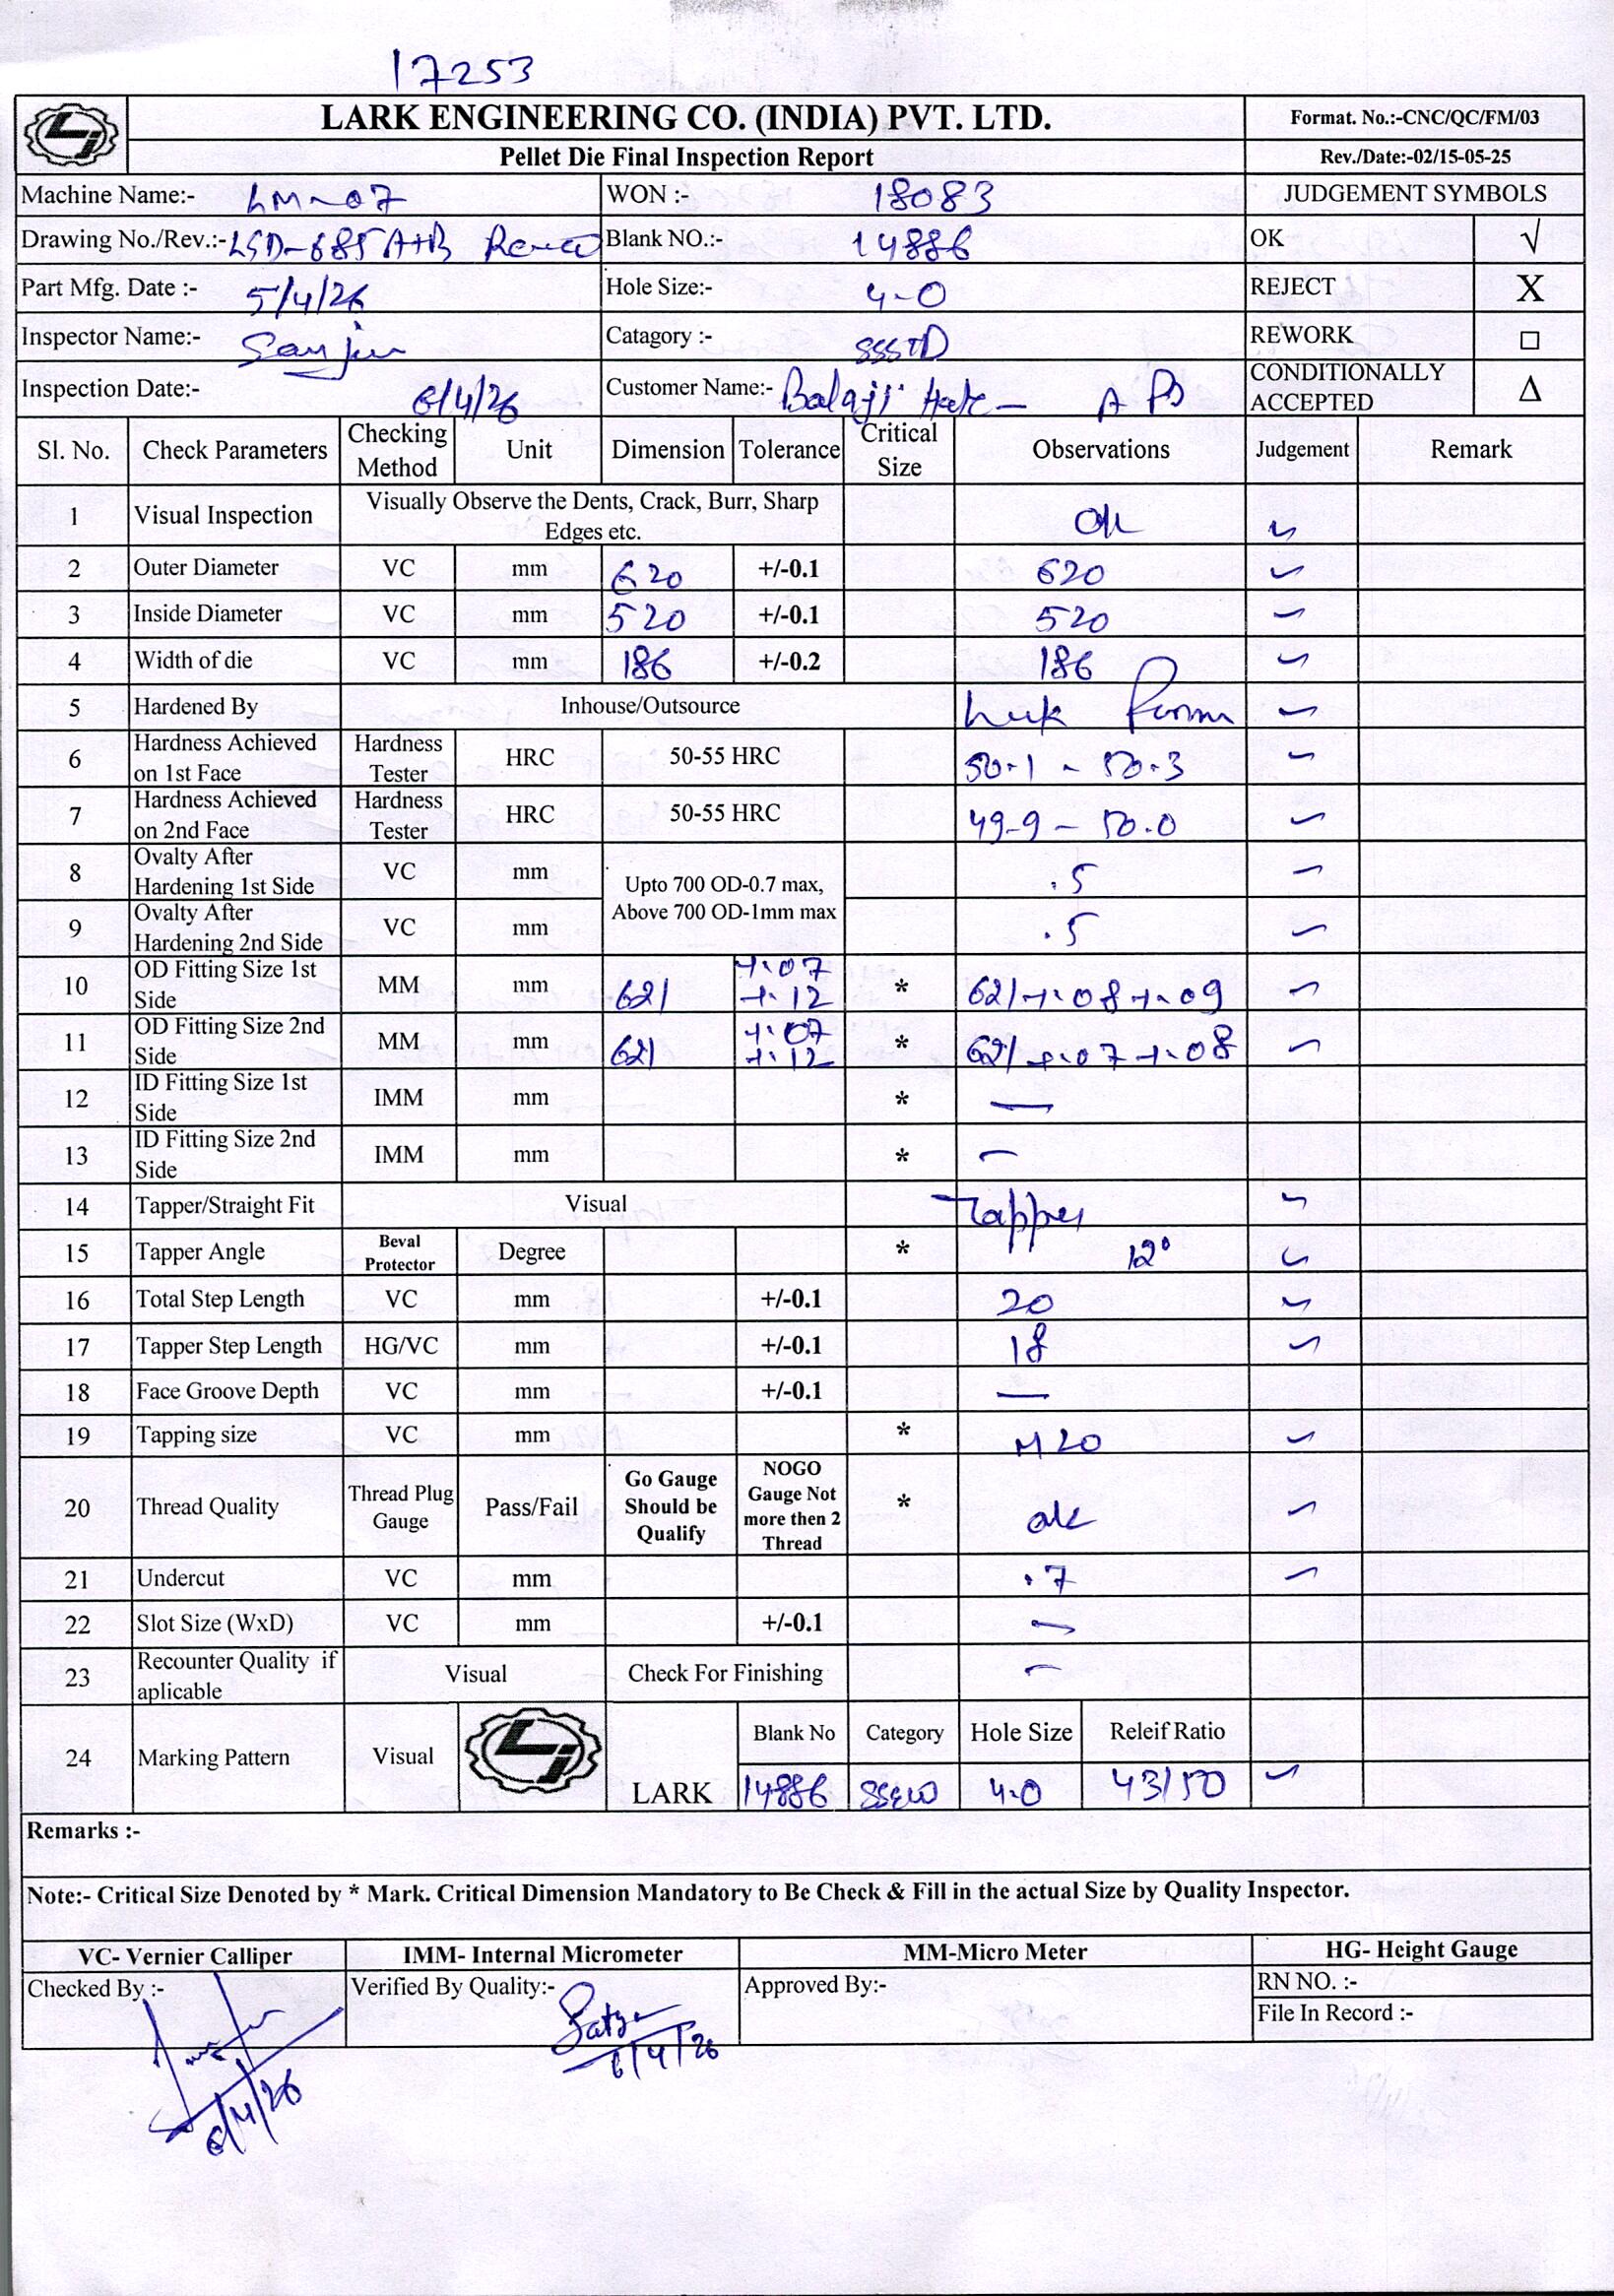 17253
LARK ENGINEERING CO. (INDIA) PVT. LTD.
Format. No.:-CNC/QC/FM/03
Pellet Die Final Inspection Report
Rev./Date:-02/15-05-25
Machine Name:- LM-07 WON :- 18083 JUDGEMENT SYMBOLS
Drawing No./Rev.:- LSD-685 A+B Blank NO.:- 14886 OK √
Part Mfg. Date :- 5/4/26 Hole Size:- 4.0 REJECT X
Inspector Name:- Sanjiv Catagory :- REWORK □
Inspection Date:- 6/4/26 Customer Name:- Balaji CONDITIONALLY ACCEPTED Δ
Sl. No. Check Parameters Checking Method Unit Dimension Tolerance Critical Size Observations Judgement Remark
1 Visual Inspection Visually Observe the Dents, Crack, Burr, Sharp Edges etc. Ok ✓
2 Outer Diameter VC mm 620 +/-0.1 620 ✓
3 Inside Diameter VC mm 520 +/-0.1 520 ✓
4 Width of die VC mm 186 +/-0.2 186 ✓
5 Hardened By Inhouse/Outsource ✓
6 Hardness Achieved on 1st Face Hardness Tester HRC 50-55 HRC 50.1 - 50.3 ✓
7 Hardness Achieved on 2nd Face Hardness Tester HRC 50-55 HRC 49.9 - 50.0 ✓
8 Ovalty After Hardening 1st Side VC mm Upto 700 OD-0.7 max, Above 700 OD-1mm max .5 ✓
9 Ovalty After Hardening 2nd Side VC mm .5 ✓
10 OD Fitting Size 1st Side MM mm 621 +.07 +.12 * 621 +.08 +.09 ✓
11 OD Fitting Size 2nd Side MM mm 621 +.07 +.12 * 621 +.07 +.08 ✓
12 ID Fitting Size 1st Side IMM mm * —
13 ID Fitting Size 2nd Side IMM mm * —
14 Tapper/Straight Fit Visual Tapper ✓
15 Tapper Angle Beval Protector Degree * 12° ✓
16 Total Step Length VC mm +/-0.1 20 ✓
17 Tapper Step Length HG/VC mm +/-0.1 18 ✓
18 Face Groove Depth VC mm +/-0.1 —
19 Tapping size VC mm * M20 ✓
20 Thread Quality Thread Plug Gauge Pass/Fail Go Gauge Should be Qualify NOGO Gauge Not more then 2 Thread * ok ✓
21 Undercut VC mm .7 ✓
22 Slot Size (WxD) VC mm +/-0.1 —
23 Recounter Quality if aplicable Visual Check For Finishing —
24 Marking Pattern Visual LARK Blank No Category Hole Size Releif Ratio
14886 4.0 43/50 ✓
Remarks :-
Note:- Critical Size Denoted by * Mark. Critical Dimension Mandatory to Be Check & Fill in the actual Size by Quality Inspector.
VC- Vernier Calliper IMM- Internal Micrometer MM-Micro Meter HG- Height Gauge
Checked By :- Verified By Quality:- Approved By:- RN NO. :-
File In Record :-
6/4/26
6/4/26